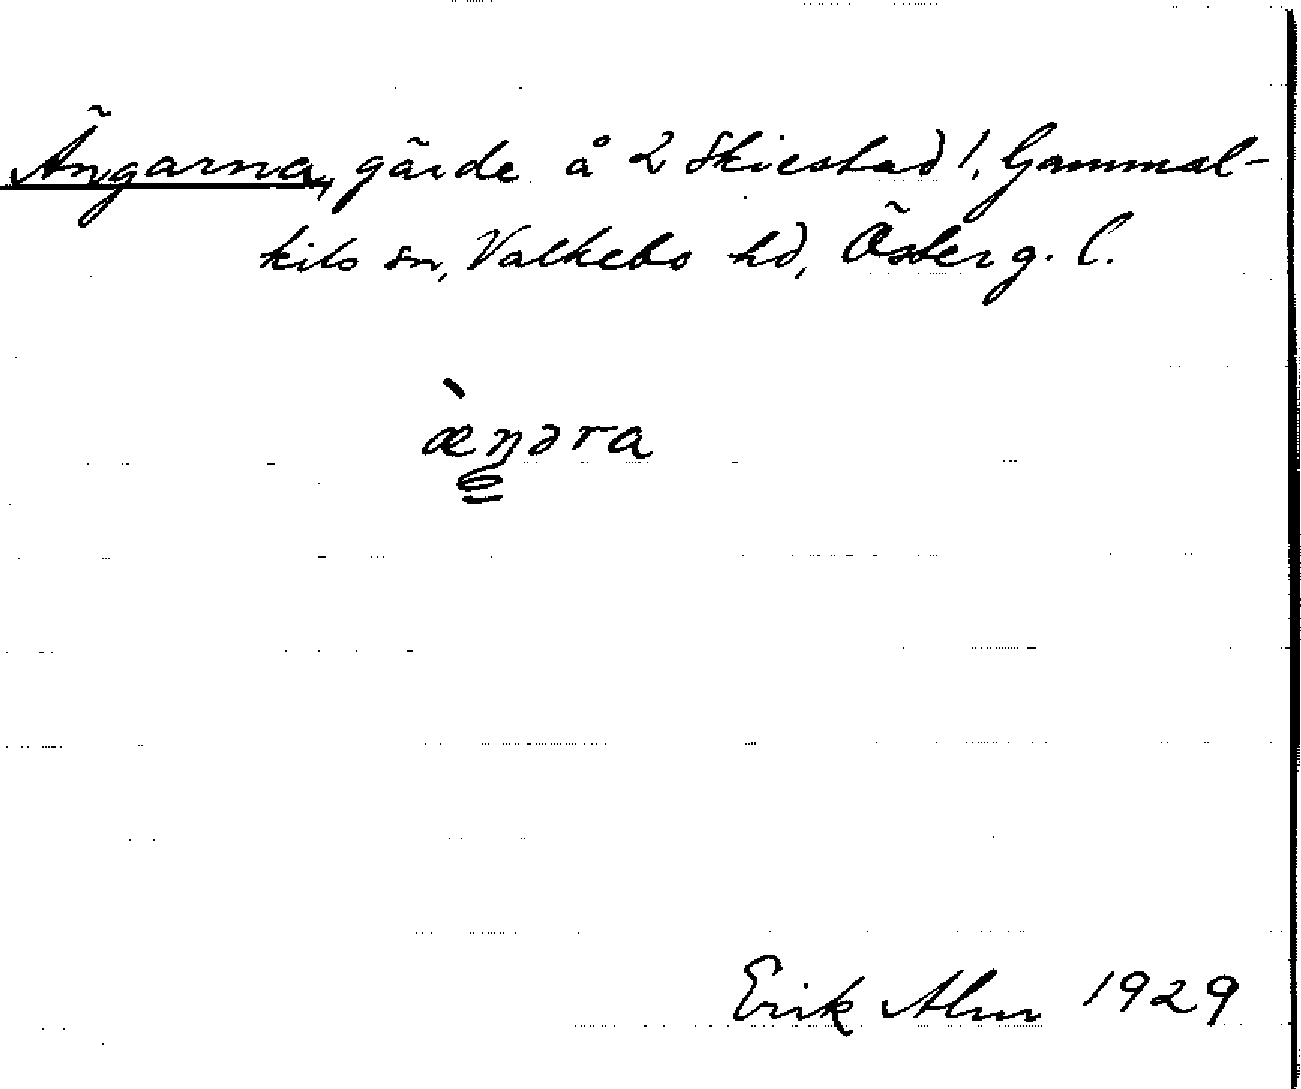 Ängarna, gärde å 2 Skiestad!, Gammal-
kils sn, Valkebo hd, Österg. l.
æ̀ŋəra
Erik Alm 1929